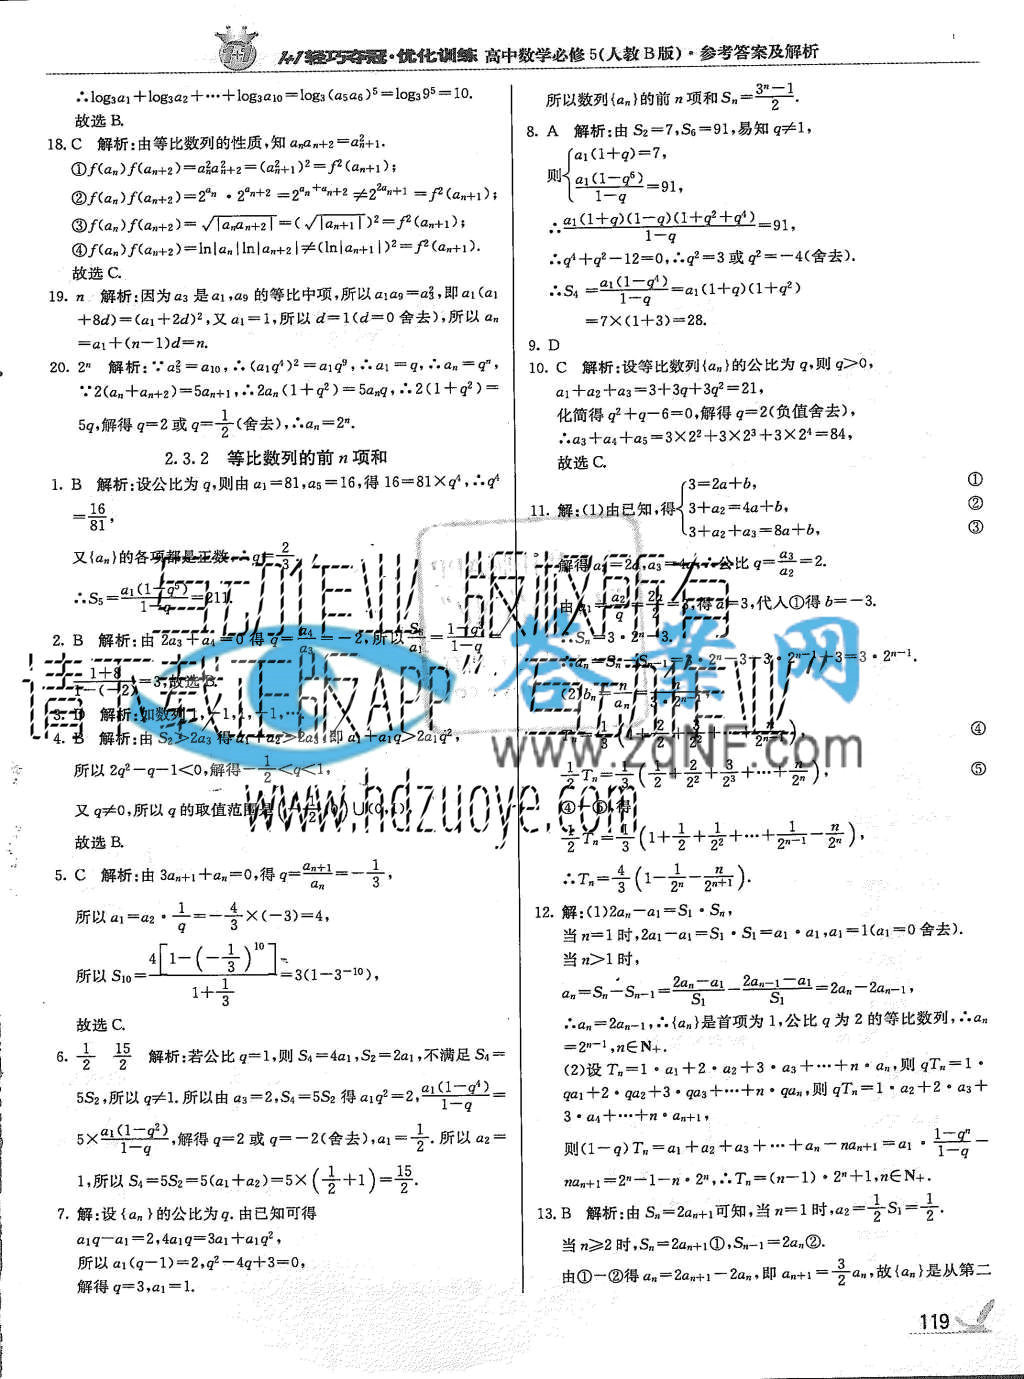 1+1轻巧夺冠·优化训练 高中数学必修5(人教B版)·参考答案及解析
∴log₃a₁+log₃a₂+…+log₃a₁₀=log₃(a₅a₆)⁵=log₃9⁵=10.
故选B.
18. C 解析:由等比数列的性质,知aₙaₙ₊₂=a²ₙ₊₁.
①f(aₙ)f(aₙ₊₂)=a²ₙa²ₙ₊₂=(a²ₙ₊₁)²=f²(aₙ₊₁);
②f(aₙ)f(aₙ₊₂)=2^(aₙ)·2^(aₙ₊₂)=2^(aₙ+aₙ₊₂)≠2^(2aₙ₊₁)=f²(aₙ₊₁);
③f(aₙ)f(aₙ₊₂)=√|aₙaₙ₊₂|=(√|aₙ₊₁|)²=f²(aₙ₊₁);
④f(aₙ)f(aₙ₊₂)=ln|aₙ|ln|aₙ₊₂|≠(ln|aₙ₊₁|)²=f²(aₙ₊₁).
故选C.
19. n 解析:因为a₃是a₁,a₉的等比中项,所以a₁a₉=a²₃,即a₁(a₁
+8d)=(a₁+2d)²,又a₁=1,所以d=1(d=0舍去),所以aₙ
=a₁+(n-1)d=n.
20. 2ⁿ 解析:∵a²₅=a₁₀,∴(a₁q⁴)²=a₁q⁹,∴a₁=q,∴aₙ=qⁿ,
∵2(aₙ+aₙ₊₂)=5aₙ₊₁,∴2aₙ(1+q²)=5aₙq,∴2(1+q²)=
5q,解得q=2或q=1/2(舍去),∴aₙ=2ⁿ.
2.3.2 等比数列的前n项和
1. B 解析:设公比为q,则由a₁=81,a₅=16,得16=81×q⁴,∴q⁴
=16/81,
又{aₙ}的各项都是正数,∴q=2/3,
∴S₅=a₁(1-q⁵)/(1-q)=211.
2. B 解析:由2a₃+a₄=0得q=a₄/a₃=-2,所以
=3,故选B.
3. D 解析:如数列1,-1,1,-1,….
4. B 解析:由S₂>2a₃得a₁+a₂>2a₃,即a₁+a₁q>2a₁q²,
所以2q²-q-1<0,解得-1/2<q<1,
又q≠0,所以q的取值范围是
故选B.
5. C 解析:由3aₙ₊₁+aₙ=0,得q=aₙ₊₁/aₙ=-1/3,
所以a₁=a₂·1/q=-4/3×(-3)=4,
所以S₁₀=4[1-(-1/3)¹⁰]/(1+1/3)=3(1-3⁻¹⁰),
故选C.
6. 1/2 15/2 解析:若公比q=1,则S₄=4a₁,S₂=2a₁,不满足S₄=
5S₂,所以q≠1.所以由a₃=2,S₄=5S₂得a₁q²=2,a₁(1-q⁴)/(1-q)=
5×a₁(1-q²)/(1-q),解得q=2或q=-2(舍去),a₁=1/2.所以a₂=
1,所以S₄=5S₂=5(a₁+a₂)=5×(1/2+1)=15/2.
7. 解:设{aₙ}的公比为q.由已知可得
a₁q-a₁=2,4a₁q=3a₁+a₁q²,
所以a₁(q-1)=2,q²-4q+3=0,
解得q=3,a₁=1.
所以数列{aₙ}的前n项和Sₙ=(3ⁿ-1)/2.
8. A 解析:由S₂=7,S₆=91,易知q≠1,
则{a₁(1+q)=7,
a₁(1-q⁶)/(1-q)=91,
∴a₁(1+q)(1-q)(1+q²+q⁴)/(1-q)=91,
∴q⁴+q²-12=0,∴q²=3或q²=-4(舍去).
∴S₄=a₁(1-q⁴)/(1-q)=a₁(1+q)(1+q²)
=7×(1+3)=28.
9. D
10. C 解析:设等比数列{aₙ}的公比为q,则q>0,
a₁+a₂+a₃=3+3q+3q²=21,
化简得q²+q-6=0,解得q=2(负值舍去),
∴a₃+a₄+a₅=3×2²+3×2³+3×2⁴=84,
故选C.
11. 解:(1)由已知,得{3=2a+b, ①
3+a₂=4a+b, ②
3+a₂+a₃=8a+b, ③
解得a₂=2a,a₃=4a,∴公比q=a₃/a₂=2.
由a₁=a₂/q=2a/2=3,得a=3,代入①得b=-3.
∴Sₙ=3·2ⁿ-3.
∴aₙ=Sₙ-Sₙ₋₁=3·2ⁿ-3-3·2ⁿ⁻¹+3=3·2ⁿ⁻¹.
(2)bₙ=n/aₙ=n/(3·2ⁿ⁻¹),
Tₙ=1/3(1+2/2+3/2²+…+n/2ⁿ⁻¹), ④
1/2Tₙ=1/3(1/2+2/2²+3/2³+…+n/2ⁿ), ⑤
④-⑤,得
1/2Tₙ=1/3(1+1/2+1/2²+…+1/2ⁿ⁻¹-n/2ⁿ),
∴Tₙ=4/3(1-1/2ⁿ-n/2ⁿ⁺¹).
12. 解:(1)2aₙ-a₁=S₁·Sₙ,
当n=1时,2a₁-a₁=S₁·S₁=a₁·a₁,a₁=1(a₁=0舍去).
当n>1时,
aₙ=Sₙ-Sₙ₋₁=(2aₙ-a₁)/S₁-(2aₙ₋₁-a₁)/S₁=2aₙ-2aₙ₋₁,
∴aₙ=2aₙ₋₁,∴{aₙ}是首项为1,公比q为2的等比数列,∴aₙ
=2ⁿ⁻¹,n∈N₊.
(2)设Tₙ=1·a₁+2·a₂+3·a₃+…+n·aₙ,则qTₙ=1·
qa₁+2·qa₂+3·qa₃+…+n·qaₙ,则qTₙ=1·a₂+2·a₃+
3·a₄+…+n·aₙ₊₁,
则(1-q)Tₙ=a₁+a₂+a₃+…+aₙ-naₙ₊₁=a₁·(1-qⁿ)/(1-q)-
naₙ₊₁=2ⁿ-1-n·2ⁿ,∴Tₙ=(n-1)·2ⁿ+1,n∈N₊.
13. B 解析:由Sₙ=2aₙ₊₁可知,当n=1时,a₂=1/2S₁=1/2.
当n≥2时,Sₙ=2aₙ₊₁①,Sₙ₋₁=2aₙ②.
由①-②得aₙ=2aₙ₊₁-2aₙ,即aₙ₊₁=3/2aₙ,故{aₙ}是从第二
119
www.hdzuoye.com
答案网
www.zqNF.com